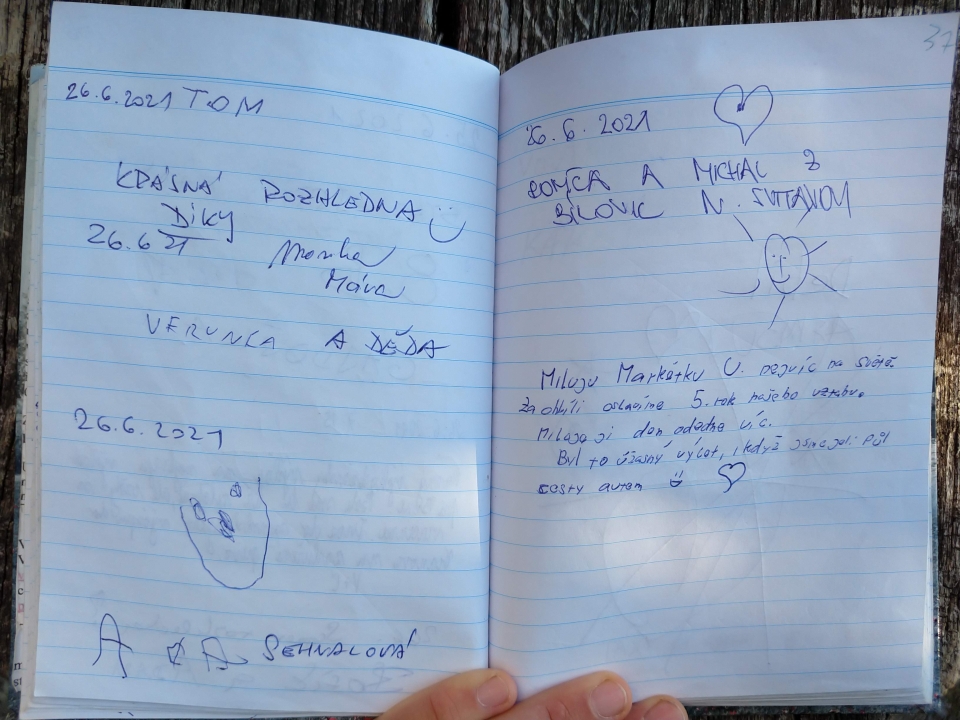 26.6.2021 TOM
KRÁSNÁ ROZHLEDNA
DÍKY
26.6 21 Monika
VERUNCA A DĚDA
26.6.2021
A SEHNALOVÁ
37
26.6.2021
A MICHAL Z
BÍLOVIC N. SVITAVOU
Miluju Markétku U. nejvíc na světě.
Za chvíli oslavíme 5. rok našeho vztahu.
Miluju ji den odedne víc.
Byl to úžasný výlet, i když jsme jeli půl
cesty autem